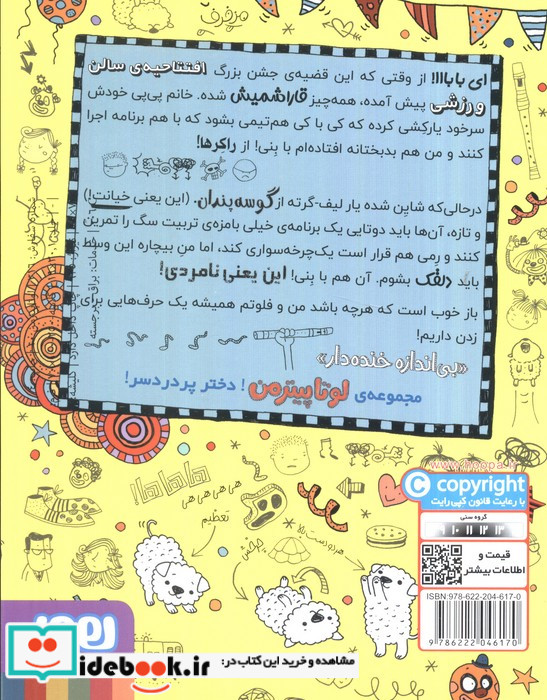 مزخرف
ای بابااا! از وقتی که این قضیه‌ی جشن بزرگ افتتاحیه‌ی سالن
ورزشی پیش آمده، همه‌چیز قاراشمیش شده. خانم پی‌پی خودش
سرخود یارکشی کرده که کی با کی هم‌تیمی بشود که با هم برنامه اجرا
کنند و من هم بدبختانه افتاده‌ام با بِنی! از راکرها!
درحالی‌که شاین شده یار لیف-گرته از گوسه‌پندان. (این یعنی خیانت!)
و تازه، آن‌ها باید دوتایی یک برنامه‌ی خیلی بامزه‌ی تربیت سگ را تمرین
کنند و رِمی هم قرار است یک‌چرخه‌سواری کند، اما منِ بیچاره این وسط
باید دلقک بشوم. آن هم با بِنی! این یعنی نامردی!
باز خوب است که هرچه باشد من و فلوتم همیشه یک حرف‌هایی برای
زدن داریم!
«بی‌اندازه خنده‌دار»
مجموعه‌ی لوتا پیترمن! دختر پردردسر!
www.hoopa.ir
copyright
با رعایت قانون کپی رایت
گروه سنی
۹ ۱۰ ۱۱ ۱۲ ۱۳
قیمت و
اطلاعات بیشتر
ISBN: 978-622-204-617-0
9 786222 046170
هاهاها!
هی هی هی هی
تعظیم
چرخش
هر دو دست بالا
مشاهده و خرید این کتاب در:
idebook.ir